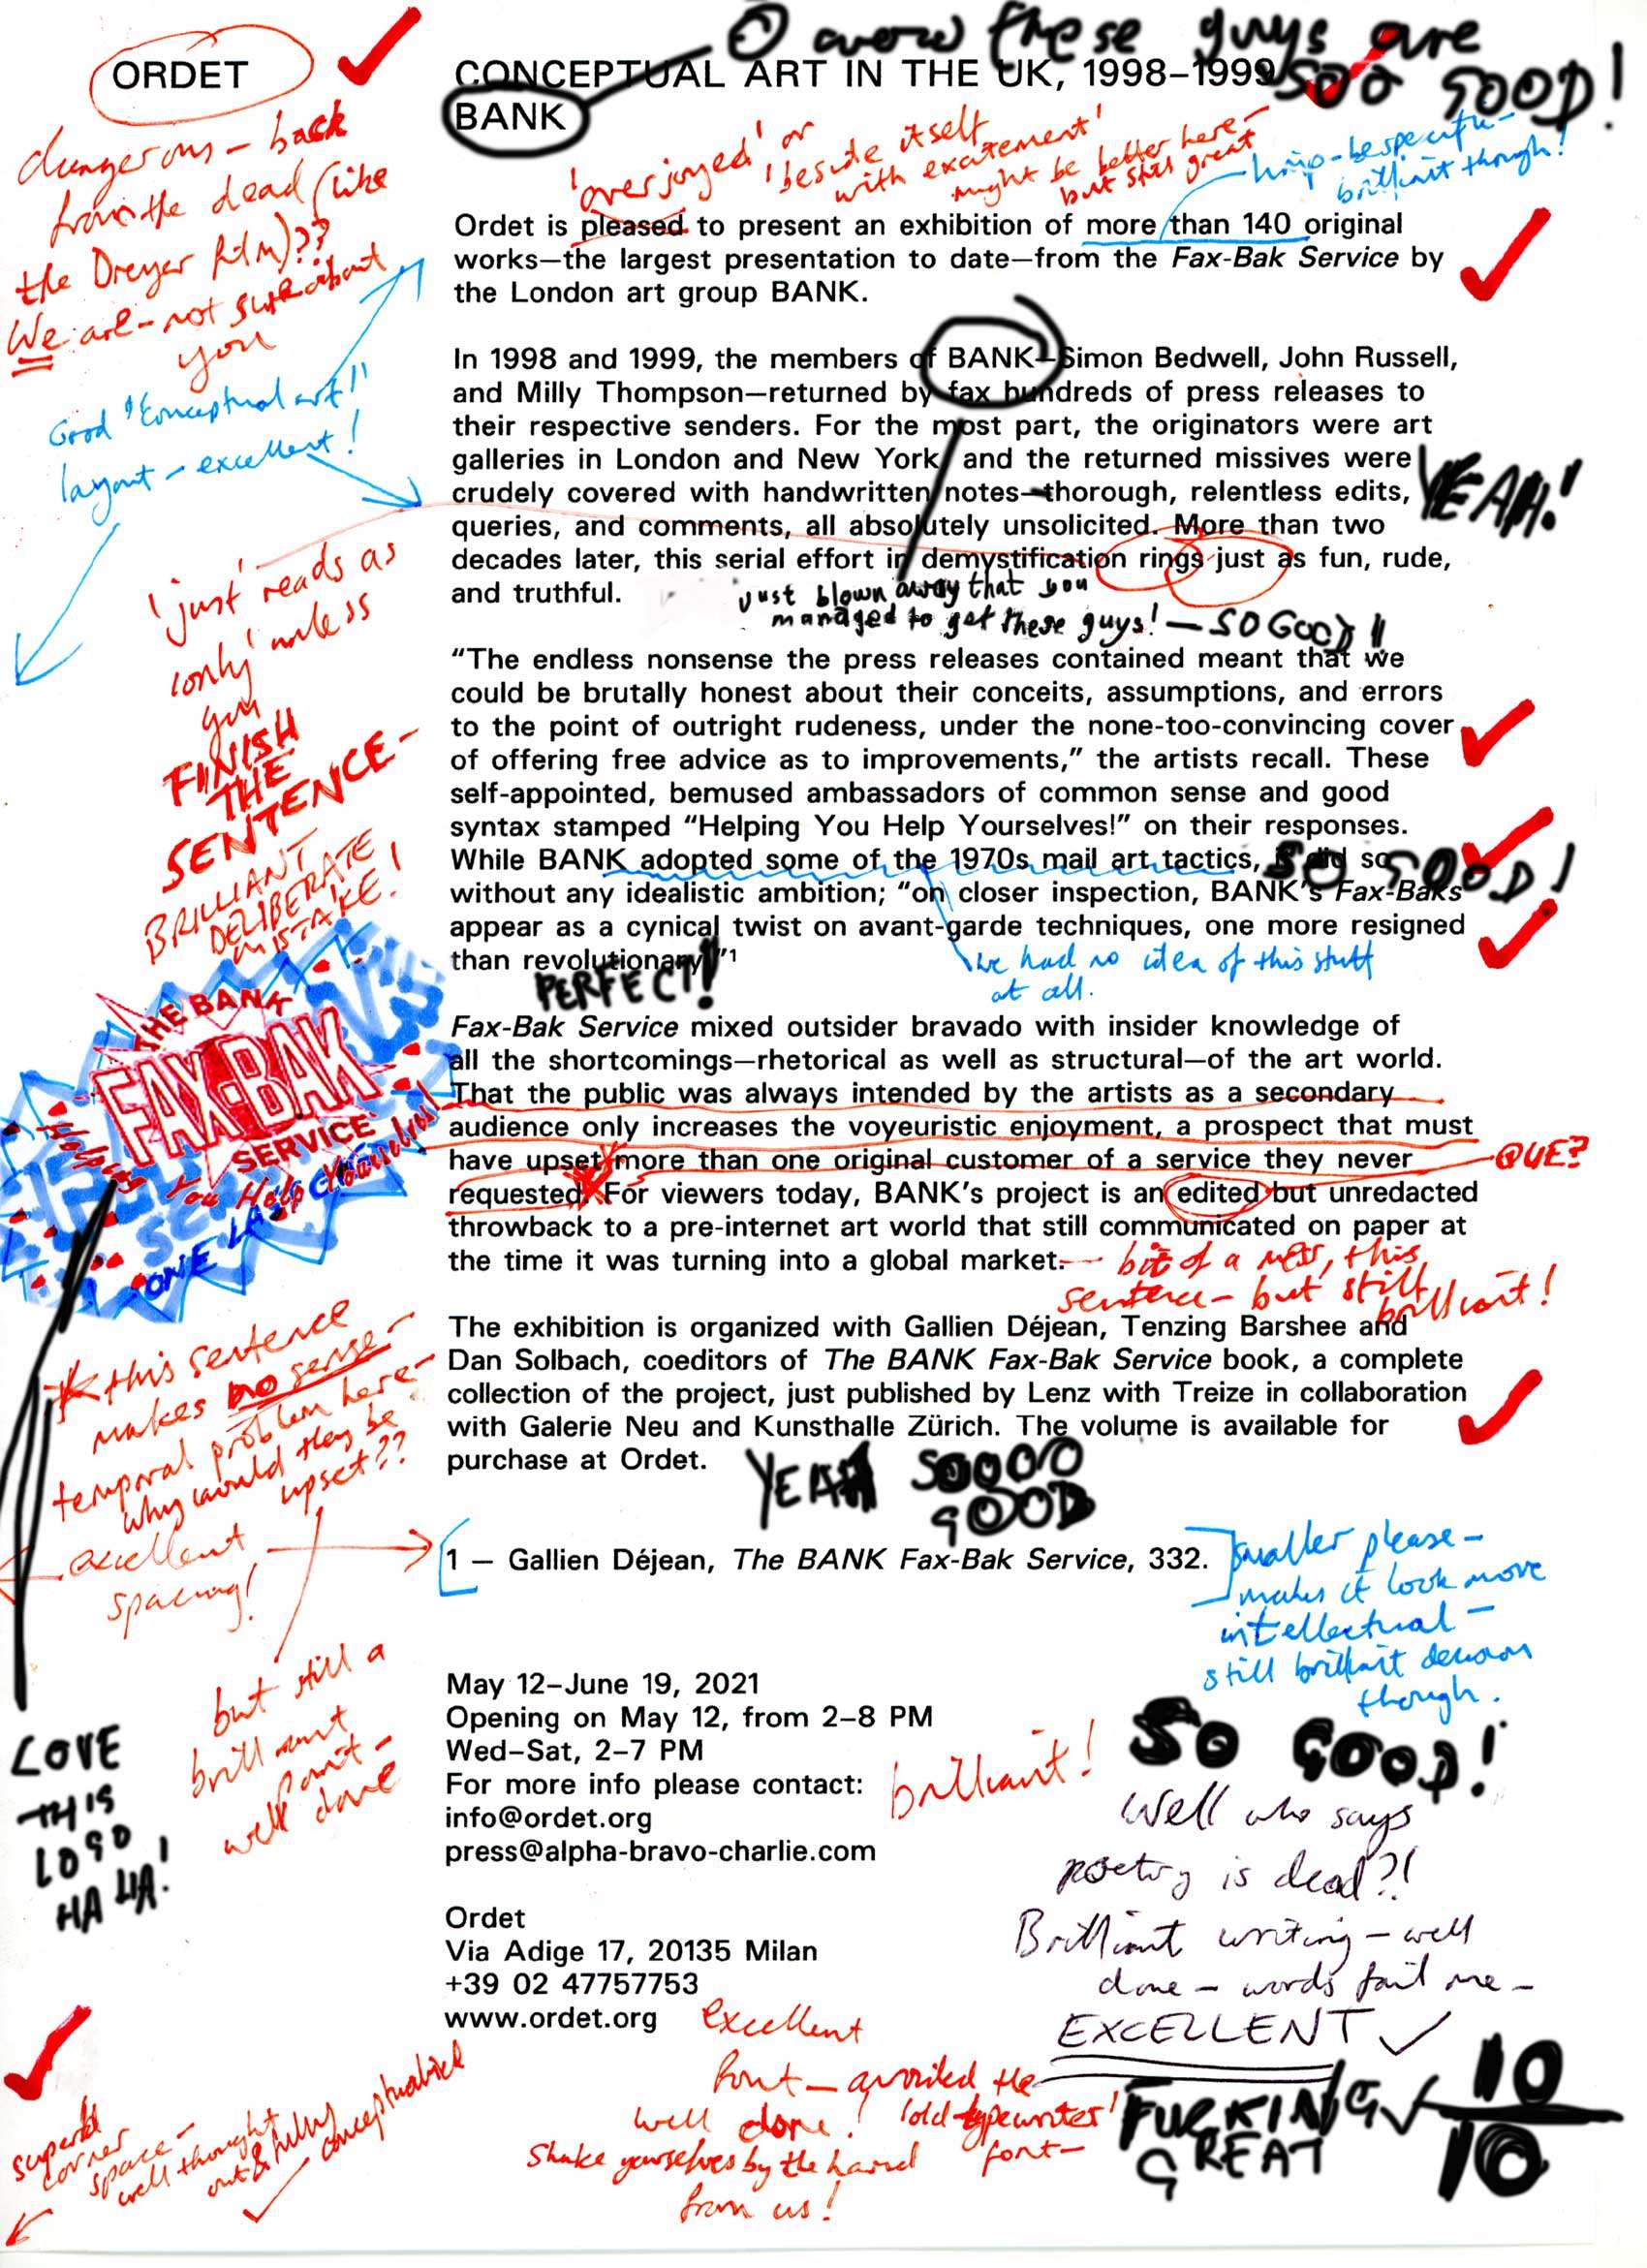 O wow these guys are
SOO GOOD!
ORDET
CONCEPTUAL ART IN THE UK, 1998–1999
BANK
dangerous – back
from the dead (like
the Dreyer film)??
We are – not sure about
you
'overjoyed' or
'beside itself
with excitement'
might be better here –
but still great
be specific –
brilliant though!
Ordet is pleased to present an exhibition of more than 140 original
works—the largest presentation to date—from the Fax-Bak Service by
the London art group BANK.
Good "Conceptual art"
layout – excellent!
In 1998 and 1999, the members of BANK—Simon Bedwell, John Russell,
and Milly Thompson—returned by fax hundreds of press releases to
their respective senders. For the most part, the originators were art
galleries in London and New York, and the returned missives were
crudely covered with handwritten notes—thorough, relentless edits,
queries, and comments, all absolutely unsolicited. More than two
decades later, this serial effort in demystification rings just as fun, rude,
and truthful.
YEAH!
Just blown away that you
managed to get these guys! – SO GOOD!!
'just' reads as
'only' unless
you
FINISH
THE
SENTENCE –
BRILLIANT
DELIBERATE
MISTAKE!
“The endless nonsense the press releases contained meant that we
could be brutally honest about their conceits, assumptions, and errors
to the point of outright rudeness, under the none-too-convincing cover
of offering free advice as to improvements,” the artists recall. These
self-appointed, bemused ambassadors of common sense and good
syntax stamped “Helping You Help Yourselves!” on their responses.
While BANK adopted some of the 1970s mail art tactics, it did so
without any idealistic ambition; “on closer inspection, BANK’s Fax-Baks
appear as a cynical twist on avant-garde techniques, one more resigned
than revolutionary.”1
SO GOOD!
PERFECT!
we had no idea of this stuff
at all.
THE BANK
FAX-BAK
SERVICE
Helping You Help Yourselves!
ONE LAST
Fax-Bak Service mixed outsider bravado with insider knowledge of
all the shortcomings—rhetorical as well as structural—of the art world.
That the public was always intended by the artists as a secondary
audience only increases the voyeuristic enjoyment, a prospect that must
have upset more than one original customer of a service they never
requested. For viewers today, BANK’s project is an edited but unredacted
throwback to a pre-internet art world that still communicated on paper at
the time it was turning into a global market.
QUE?
bit of a mess, this
sentence – but still
brilliant!
this sentence
makes no sense –
temporal problem here –
why would they be
upset??
The exhibition is organized with Gallien Déjean, Tenzing Barshee and
Dan Solbach, coeditors of The BANK Fax-Bak Service book, a complete
collection of the project, just published by Lenz with Treize in collaboration
with Galerie Neu and Kunsthalle Zürich. The volume is available for
purchase at Ordet.
YEAH SOOOO
GOOD
excellent
spacing!
1 — Gallien Déjean, The BANK Fax-Bak Service, 332.
smaller please –
makes it look more
intellectual –
still brilliant decision
though.
but still a
brilliant
point –
well done
LOVE
THIS
LOGO
HA HA!
May 12–June 19, 2021
Opening on May 12, from 2–8 PM
Wed–Sat, 2–7 PM
For more info please contact:
info@ordet.org
press@alpha-bravo-charlie.com
brilliant!
SO GOOD!
Well who says
poetry is dead?!
Brilliant writing – well
done – words fail me –
EXCELLENT
Ordet
Via Adige 17, 20135 Milan
+39 02 47757753
www.ordet.org
excellent
font – avoided the
well done! 'old typewriter'
font –
Shake yourselves by the hand
from us!
FUCKING
GREAT
10
10
superb
corner
space –
well thought
out & fully
conceptualised